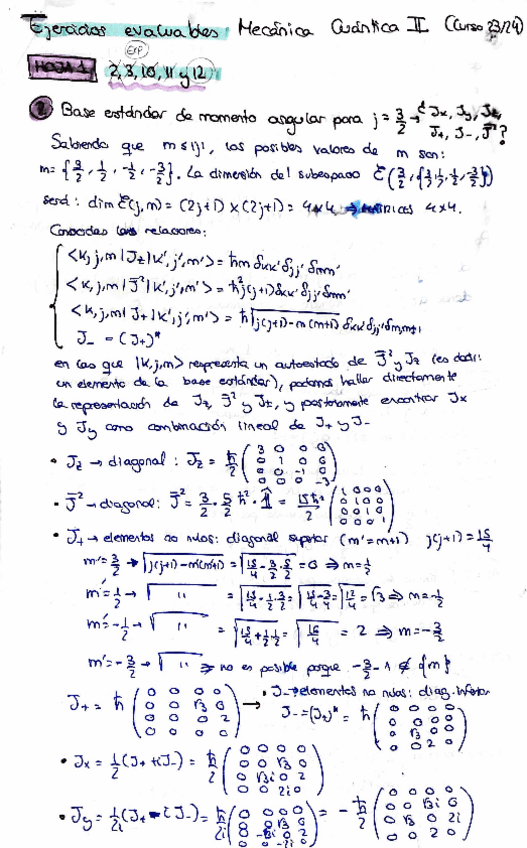 Ejercicios evaluables Mecánica Cuántica II (Curso 23/24)
EXP
HOJA 1 2, 3, 10, 11 y 12
2 Base estándar de momento angular para j = 3/2 → ¿ Jx, Jy, Jz,
J+, J-, J² ?
Sabiendo que m ≤ |j|, los posibles valores de m son:
m = {3/2, 1/2, -1/2, -3/2}. La dimensión del subespacio
será: dim E(j,m) = (2j+1) x (2j+1) = 4x4 → matrices 4x4.
Conocidas las relaciones:
<k,j,m|Jz|k',j',m'> = ħm δkk' δjj' δmm'
<k,j,m|J²|k',j',m'> = ħ²j(j+1) δkk' δjj' δmm'
<k,j,m|J+|k',j',m'> = ħ√j(j+1)-m(m+1) δkk' δjj' δm,m+1
J- = (J+)*
en las que |k,j,m> representa un autoestado de J² y Jz (es decir:
un elemento de la base estándar), podemos hallar directamente
la representación de Jz, J² y J±, y posteriormente encontrar Jx
y Jy como combinación lineal de J+ y J-
• Jz → diagonal: Jz = ħ/2 (3 0 0 0
0 1 0 0
0 0 -1 0
0 0 0 -3)
• J² → diagonal: J² = 3/2 · 5/2 ħ² · 1 = 15ħ²/2 (1 0 0 0
0 1 0 0
0 0 1 0
0 0 0 1)
• J+ → elementos no nulos: diagonal superior (m' = m+1) j(j+1) = 15/4
m' = 3/2 → √j(j+1)-m(m+1) = √15/4 - 3/2·5/2 = 0 ⇒ m = 1/2
m' = 1/2 → √ " = √15/4 - 1/2·3/2 = √15/4 - 3/4 = √12/4 = √3 ⇒ m = -1/2
m' = -1/2 → √ " = √15/4 + 1/2·1/2 = √16/4 = 2 ⇒ m = -3/2
m' = -3/2 → √ " ⇒ no es posible porque -3/2 - 1 ∉ {m}
J+ = ħ (0 0 0 0
0 0 √3 0
0 0 0 2
0 0 0 0)
• J- → elementos no nulos: diag. inferior
J- = (J+)* = ħ (0 0 0 0
0 0 0 0
0 √3 0 0
0 0 2 0)
• Jx = 1/2 (J+ + J-) = ħ/2 (0 0 0 0
0 0 √3 0
0 √3i 0 2
0 0 2i 0)